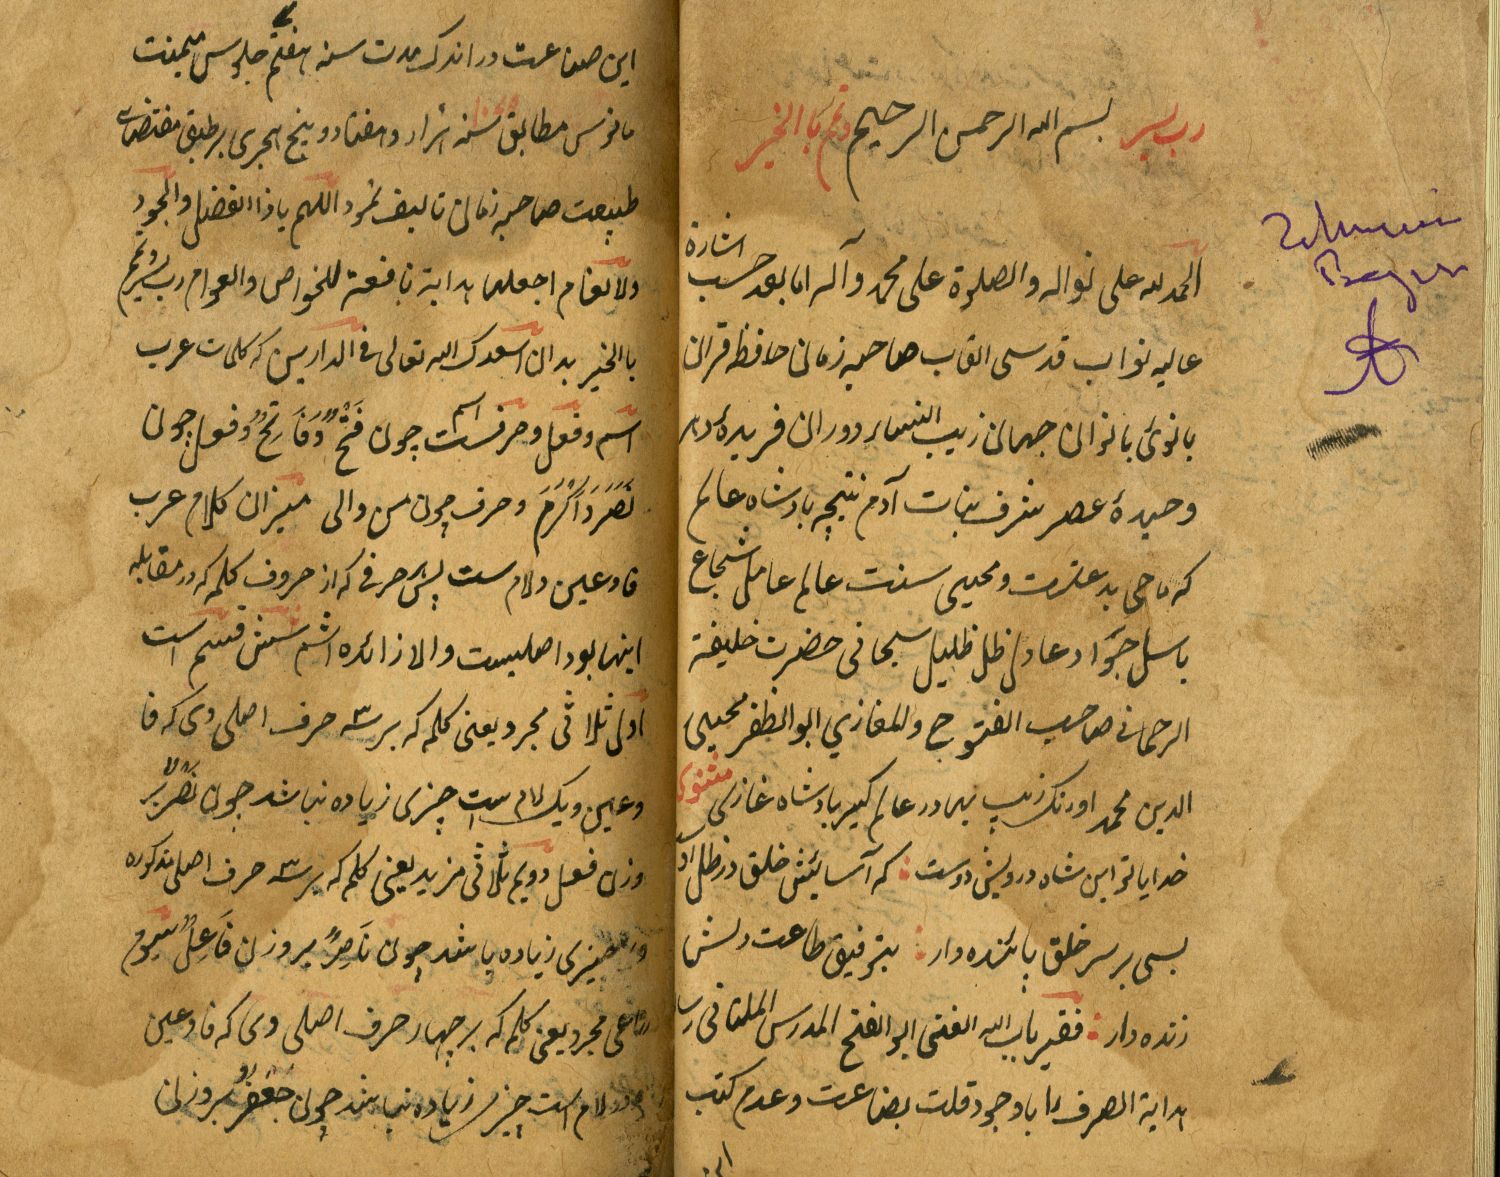 رب یسر بسم الله الرحمن الرحیم وتمم بالخیر
الحمد لله علی نواله والصلوة علی محمد وآله اما بعد حسب اشارة
عالیه نواب قدسی القاب صاحبه زمانی حافظه قران
بانوی بانوان جهان زیب النساء دوران فریدهٔ دهر
وحیدهٔ عصر شرف بنات آدم نتیجه بادشاه عالم
که ماحی بدعتست ومحیی سنت عالم عامل شجاع
باسل جواد عادل ظل ظلیل سبحانی حضرت خلیفة
الرحمانی صاحب الفتوح والمغازي ابو الظفر محیی
الدین محمد اورنک زیب بهادر عالم کیر بادشاه غازی مثنوی
خدایا تو این شاه درویش دوست که آسائش خلق در ظل اوست
بسی بر سر خلق پائنده دار بتوفیق طاعت دلش
زنده دار فقیر باب الله الغنی ابو الفتح المدرس الملتانی
هدایة الصرف را باوجود قلت بضاعت وعدم کتب
این صناعت در اندک مدت سنه هفتم جلوس میمنت
مانوس مطابق سنه هزار وهفتاد وپنج هجری بر طبق مقتضای
طبیعت صاحبه زمانی تالیف نمود اللهم یا ذا الفضل والجود
والانعام اجعلها هدایة نافعة للخواص والعوام رب یسر وتمم
بالخیر بدان اسعدک الله تعالی فی الدارین که کلمات عرب
اسم وفعل وحرفست اسم چون فَتْحٌ وفَاتِحٌ وفعل چون
نَصَرَ وَاَکْرَمَ وحرف چون من والی میزان کلام عرب
فا وعین ولام ست پس هر حرفی که از حروف کلمه که در مقابله
اینها بود اصلیست والا زائده اسم شش قسم است
اول ثلاثی مجرد یعنی کلمه که بر سه ۳ حرف اصلی وی که فا
وعین ویک لام ست چیزی زیاده نباشد چون نَصْرٌ بر
وزن فعل دویم ثلاثی مزید یعنی کلمه که بر سه ۳ حرف اصلی مذکوره
وی چیزی زیاده باشد چون نَاصِرٌ بر وزن فَاعِلٌ سیوم
رباعی مجرد یعنی کلمه که بر چهار حرف اصلی وی که فا وعین
ودو لام است چیزی زیاده نباشد چون جَعْفَرٌ بر وزن